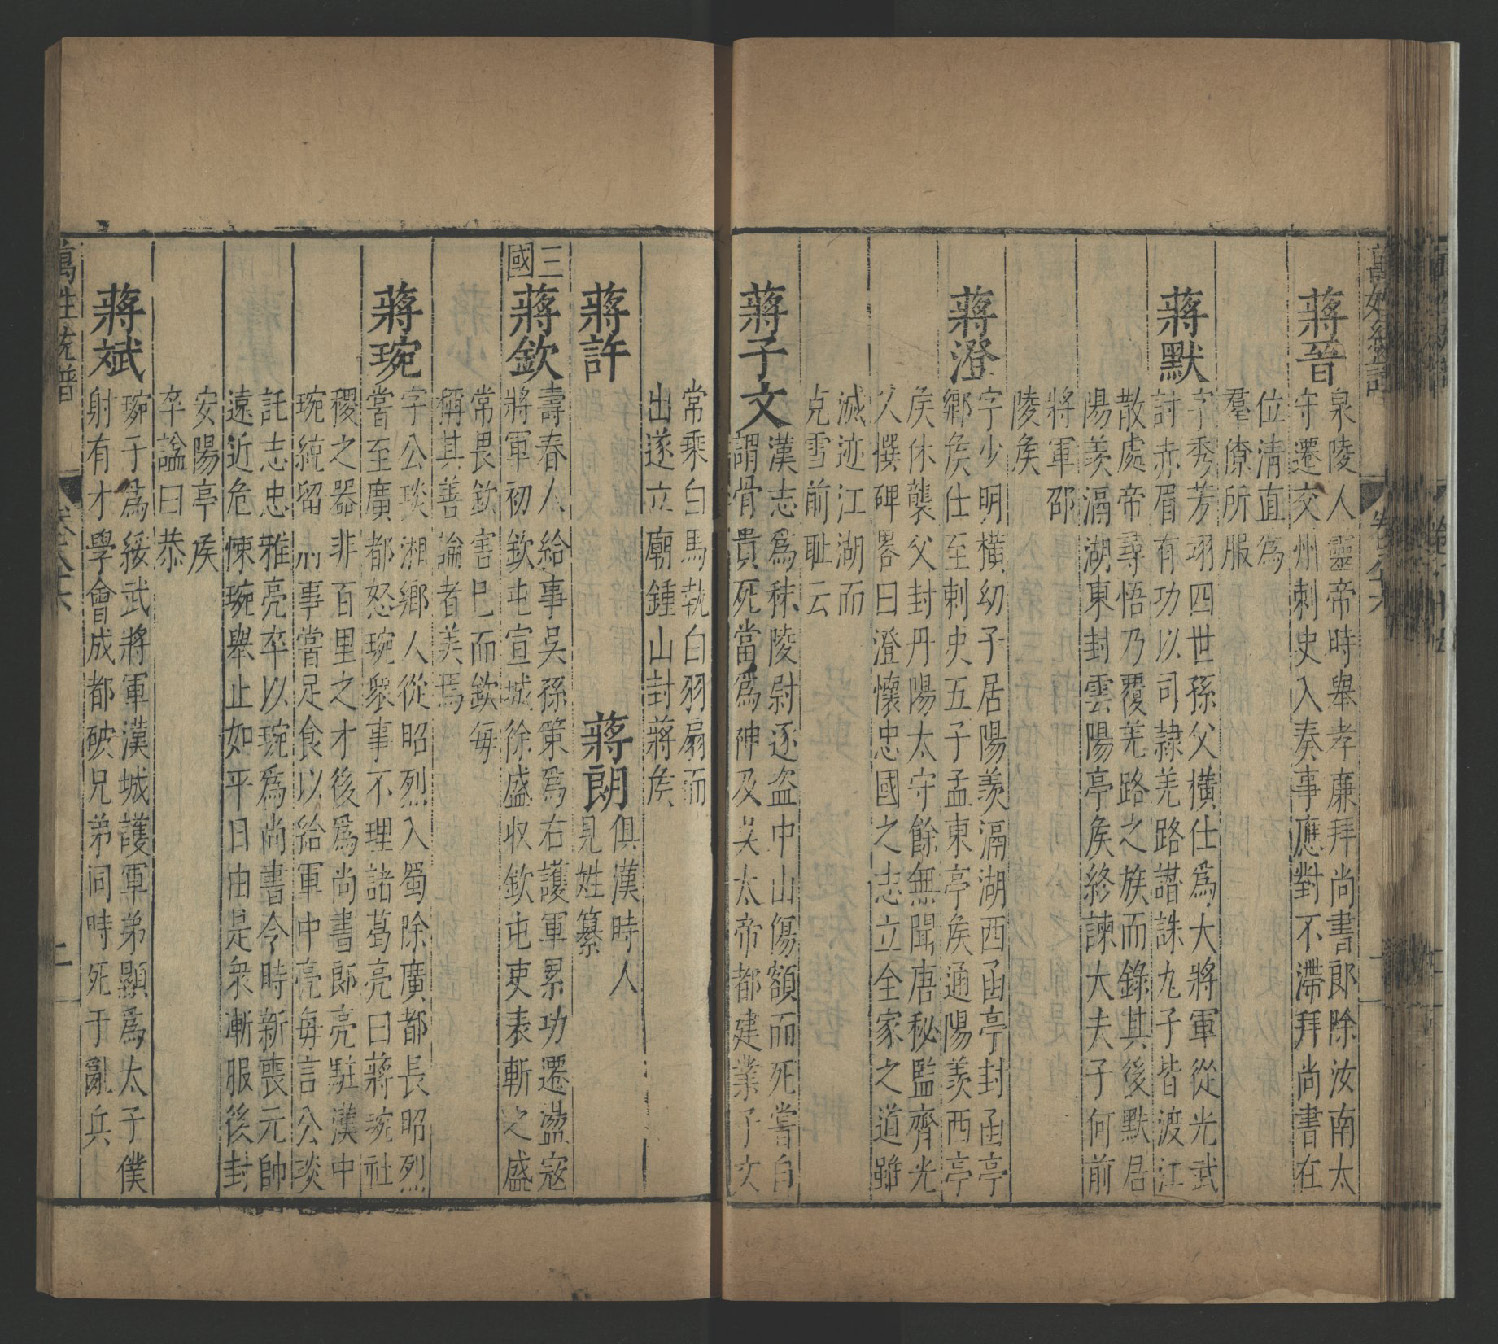 萬姓統譜
卷八十六
蔣晉
泉陵人靈帝時舉孝廉拜尚書郎除汝南太
守遷交州刺史入奏事應對不滯拜尚書在
位清直爲
羣僚所服
蔣默
字秀芳翊四世孫父橫仕爲大將軍從光武
討赤眉有功以司隷羌路譛誅九子皆渡江
散處帝尋悟乃覆羌路之族而錄其後默居
陽羨滆湖東封雲陽亭矦終諫大夫子何前
將軍邵
陵矦
蔣澄
字少明橫幼子居陽羨滆湖西函亭封函亭
鄉矦仕至刺史五子孟東亭矦通陽羨西亭
矦休襲父封丹陽太守餘無聞唐秘監齊光
乂撰碑畧曰澄懷忠國之志立全家之道雖
滅迹江湖而
克雪前耻云
蔣子文
漢志爲秣陵尉逐盗中山傷額而死嘗自
謂骨貴死當爲神及吴太帝都建業子文
常乘白馬執白羽扇而
出遂立廟鍾山封蔣矦
蔣許
蔣朗
俱漢時人
見姓纂
三國
蔣欽
壽春人給事吴孫策爲右護軍累功遷盪寇
將軍初欽屯宣城徐盛收欽屯吏表斬之盛
常畏欽害巳而欽每
稱其善論者美焉
蔣琬
字公琰湘鄉人從昭烈入蜀除廣都長昭烈
嘗至廣都怒琬衆事不理諸葛亮曰蔣琬社
稷之器非百里之才後爲尚書郎亮駐漢中
琬統留府事當足食以給軍中亮每言公琰
託志忠雅亮卒以琬爲尚書令時新喪元帥
遠近危悚琬舉止如平日由是衆漸服後封
安陽亭矦
卒諡曰恭
蔣斌
琬子爲綏武將軍漢城護軍弟顯爲太子僕
射有才學會成都破兄弟同時死于亂兵
萬姓統譜
卷八十六
十一